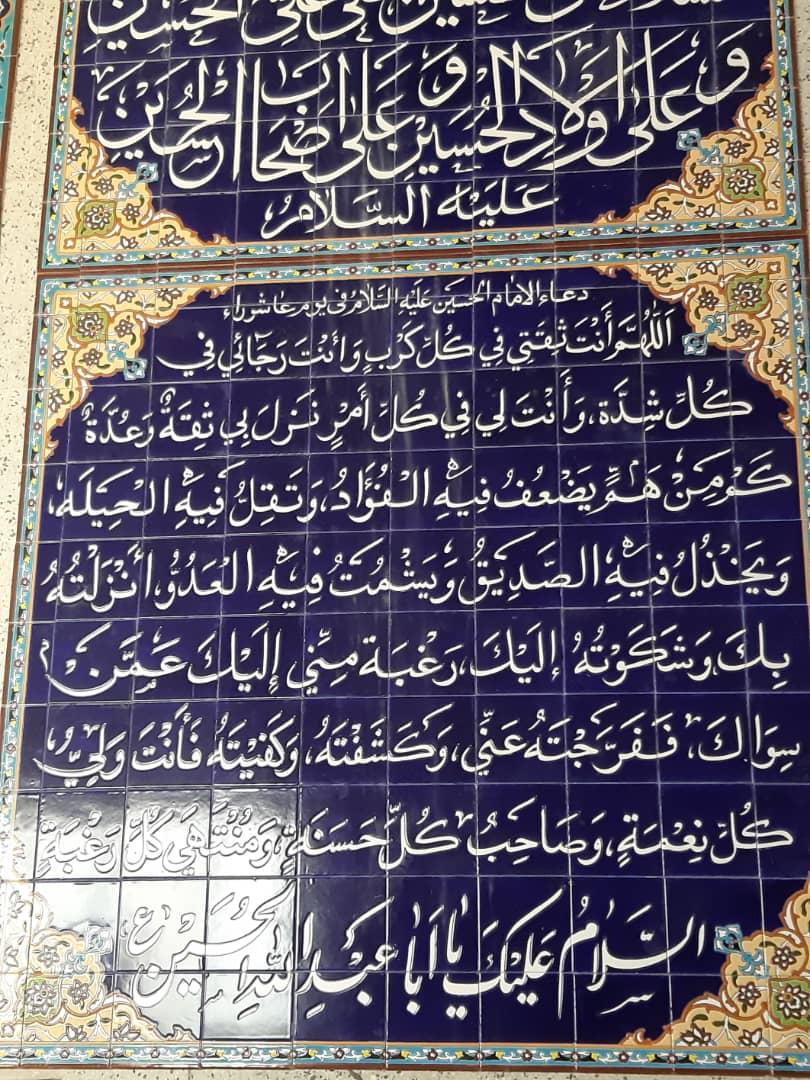 وعلى الحسين
وَعَلىٰ اَوْلادِ الْحُسَيْنِ وَعَلىٰ اَصْحَابِ الْحُسَيْنِ
عَلَيْهِ السَّلَامُ
دعاء الامام الحسين عَلَيْهِ السَّلامُ في يوم عاشوراء
اَللّٰهُمَّ أَنْتَ ثِقَتي فِي كُلِّ كَرْبٍ وَأَنْتَ رَجٰائي فِي
كُلِّ شِدَّة، وَأَنْتَ لي فِي كُلِّ أَمْرٍ نَزَلَ بِي ثِقَةٌ وَعُدَّةٌ
كَمْ مِنْ هَمٍّ يَضْعُفُ فيهِ الْفُؤَادُ، وَتَقِلُّ فيهِ الْحيلَه،
وَيَخْذُلُ فيهِ الصَّديقُ وَيَشْمُتُ فيهِ الْعَدُوُّ، أَنْزَلْتُهُ
بِكَ، وَشَكَوْتُهُ إليْكَ، رَغْبَة مِنّي إِلَيْكَ عَمَّنْ
سِوَاكَ، فَفَرَّجْتَهُ عَنّي، وَكَشَفْتَهُ، وَكَفَيْتَهُ فَأَنْتَ وَلِيُّ
كُلِّ نِعْمَةٍ، وَصَاحِبُ كُلِّ حَسَنَةٍ، وَمُنْتَهىٰ كُلِّ رَغْبَةٍ
السَّلَامُ عَلَيْكَ يا اَبا عَبْدِ اللّٰهِ الْحُسَيْن ع